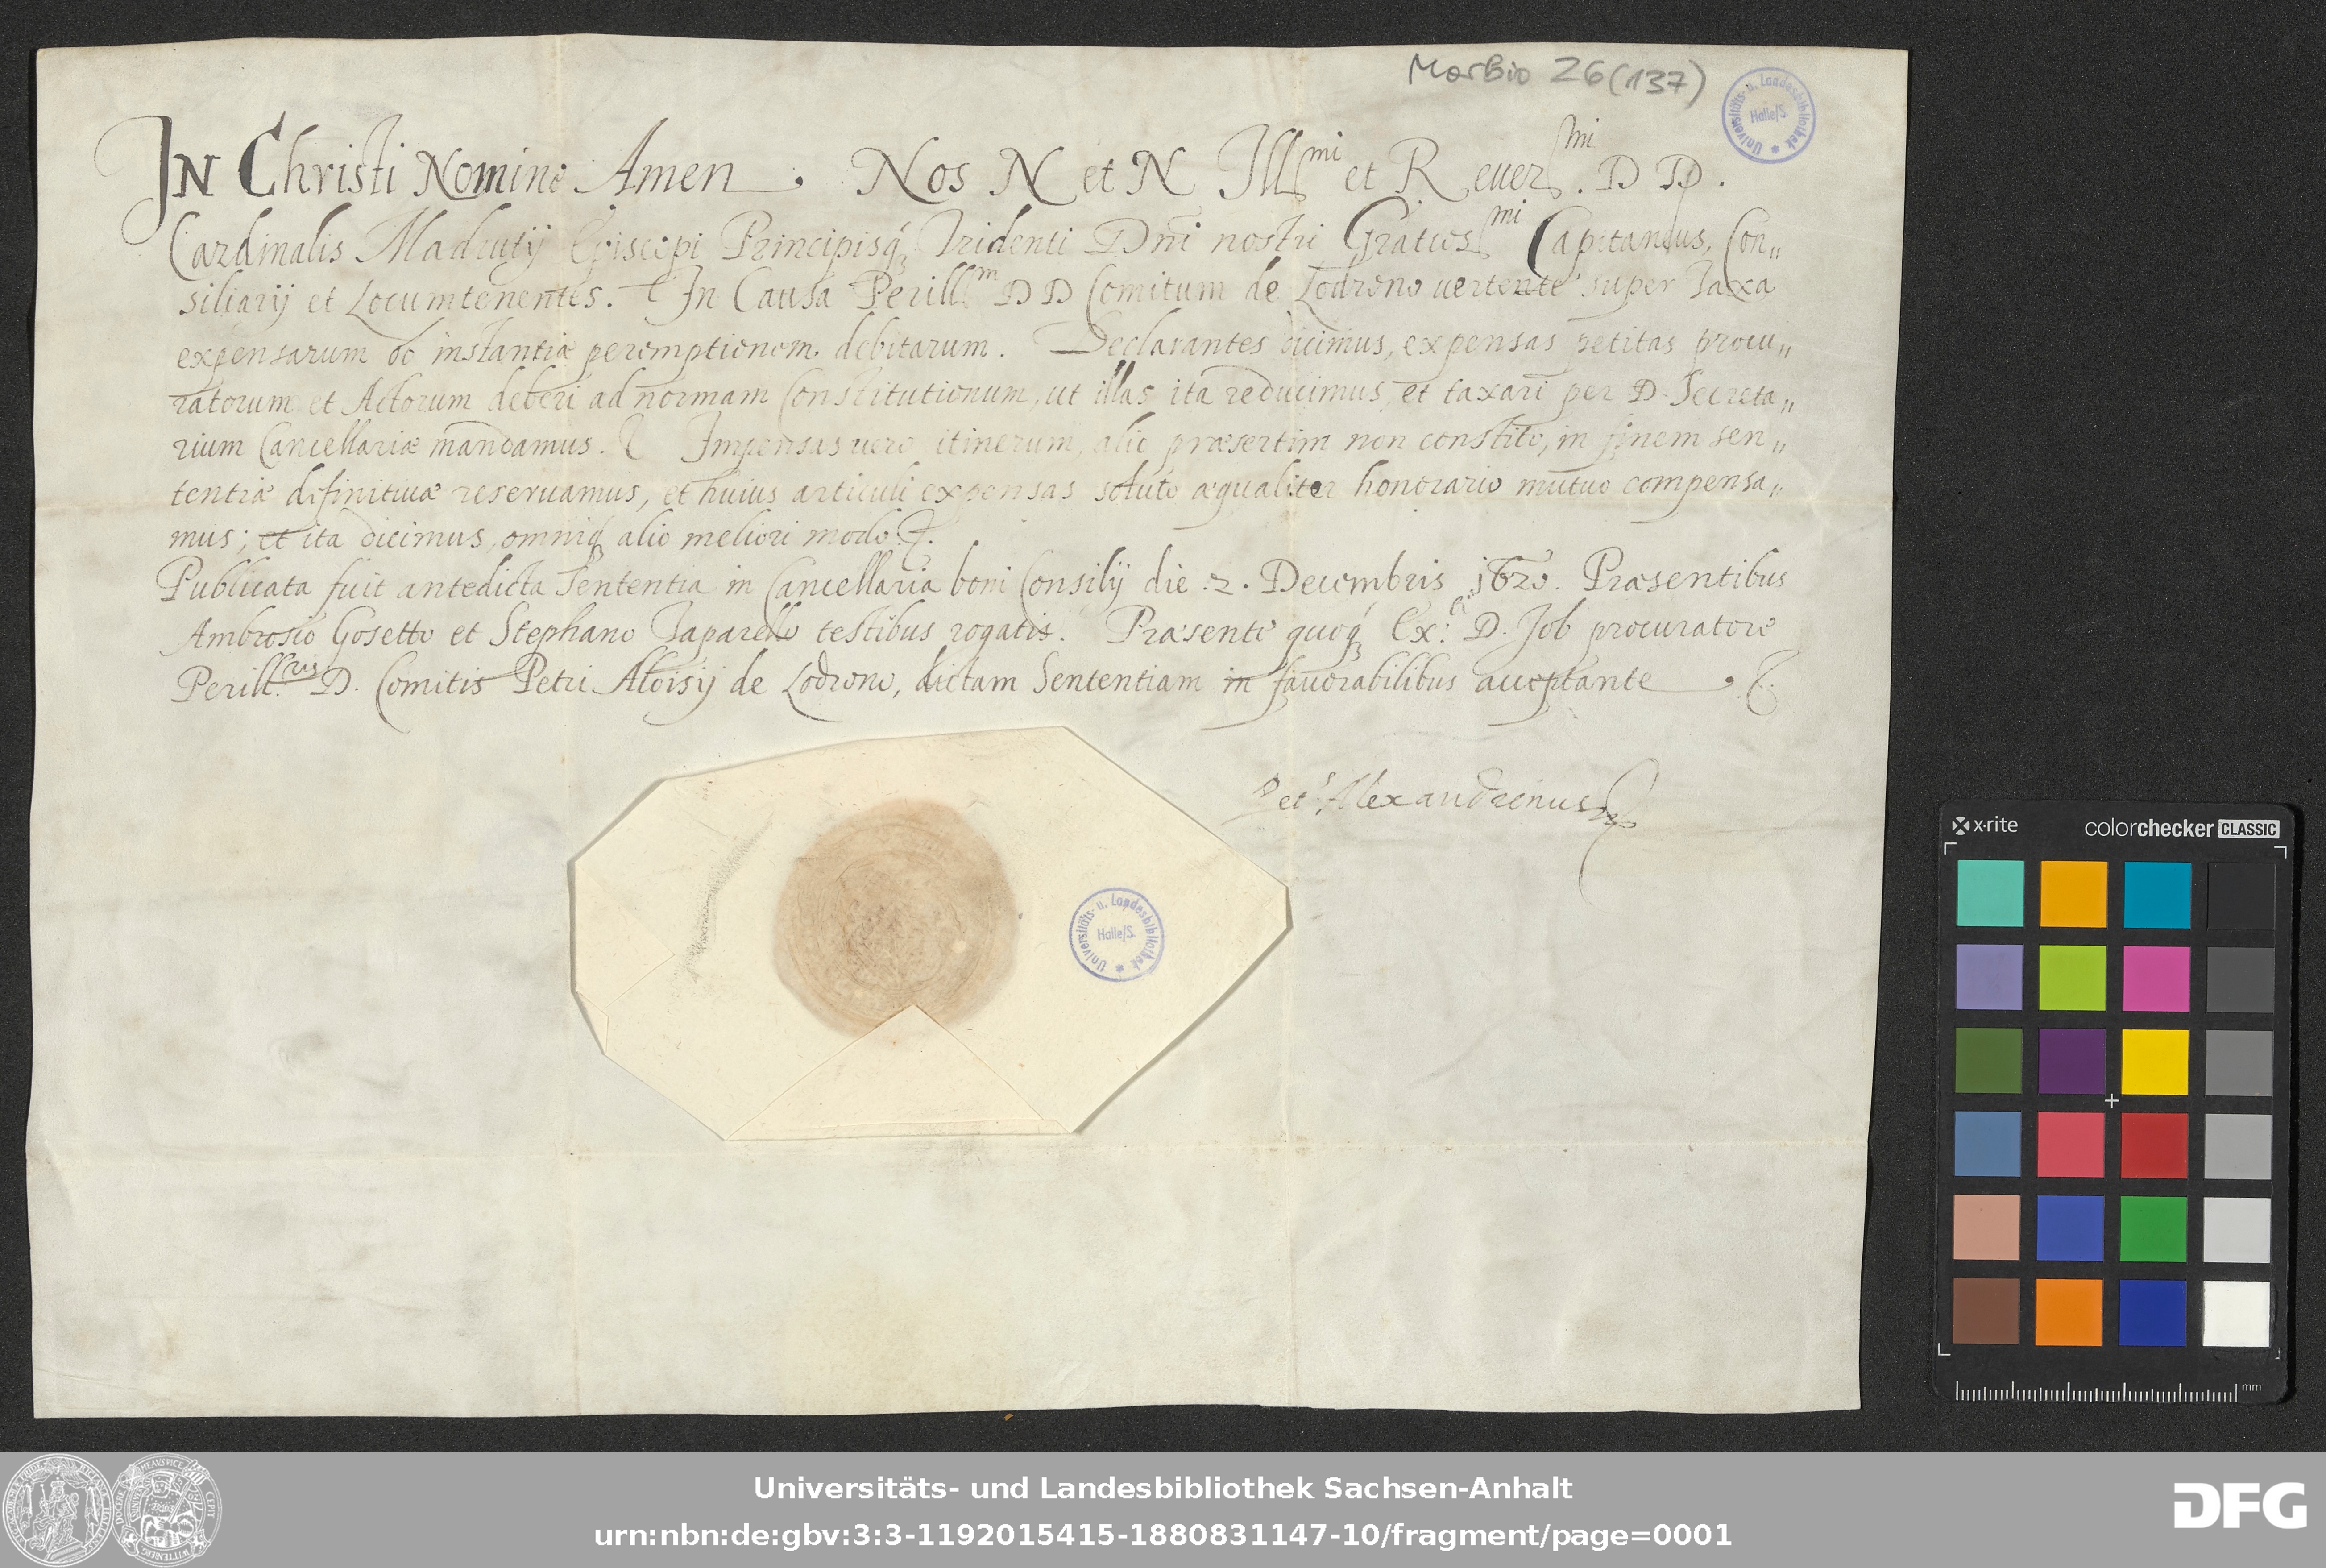 Morbio 26 (137)
Universitäts- u. Landesbibliothek Halle/S.
IN Christi Nomine Amen. Nos N et N Ill.mi et Reuer.mi D D.
Cardinalis Madrutij Episcopi Principisq. Tridenti Dn̄i nostri Gratios.mi Capitaneus, Con„
siliarij et Locumtenentes. In Causa Perill.m D D Comitum de Lodrono uertente super Taxa
expensarum ob instantiæ peremptionem debitarum. Declarantes dicimus, expensas petitas procu„
ratorum et Actorum deberi ad normam Constitutionum, ut illas ita reducimus, et taxari per D. Secreta„
rium Cancellariæ mandamus. Impensas uero itinerum, alio præsertim non constito, in finem sen„
tentiæ definitiuæ reseruamus, et huius articuli expensas soluto æqualiter honorario mutuo compensa„
mus; et ita dicimus, omniq. alio meliori modo.
Publicata fuit antedicta Sententia in Cancellaria boni Consilij die .2. Decembris 1620. Præsentibus
Ambrosio Gosetto et Stephano Taparello testibus rogatis. Præsente quoq. Ex. D. Job procuratore
Perill.ris D. Comitis Petri Aloisij de Lodrono, dictam Sententiam in fauorabilibus acceptante.
Pet.s Alexandrinus
Universitäts- u. Landesbibliothek Halle/S.
x-rite colorchecker CLASSIC
mm
Universitäts- und Landesbibliothek Sachsen-Anhalt
urn:nbn:de:gbv:3:3-1192015415-1880831147-10/fragment/page=0001
DFG